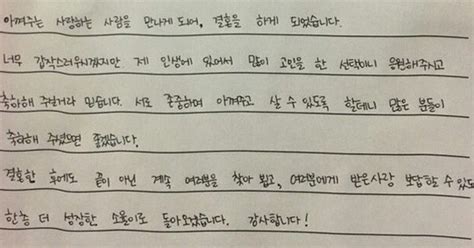 아껴주는 사랑하는 사람을 만나게 되어, 결혼을 하게 되었습니다.
너무 갑작스러우시겠지만 제 인생에 있어서 많이 고민을 한 선택이니 응원해주시고
축하해 주실거라 믿습니다. 서로 존중하며 아껴주고 살 수 있도록 할테니 많은 분들이
축하해 주셨으면 좋겠습니다.
결혼한 후에도 끝이 아닌 계속 여러분을 찾아 뵙고, 여러분에게 받은사랑 보답할 수 있도
한층 더 성장한 소율이로 돌아오겠습니다. 감사합니다!